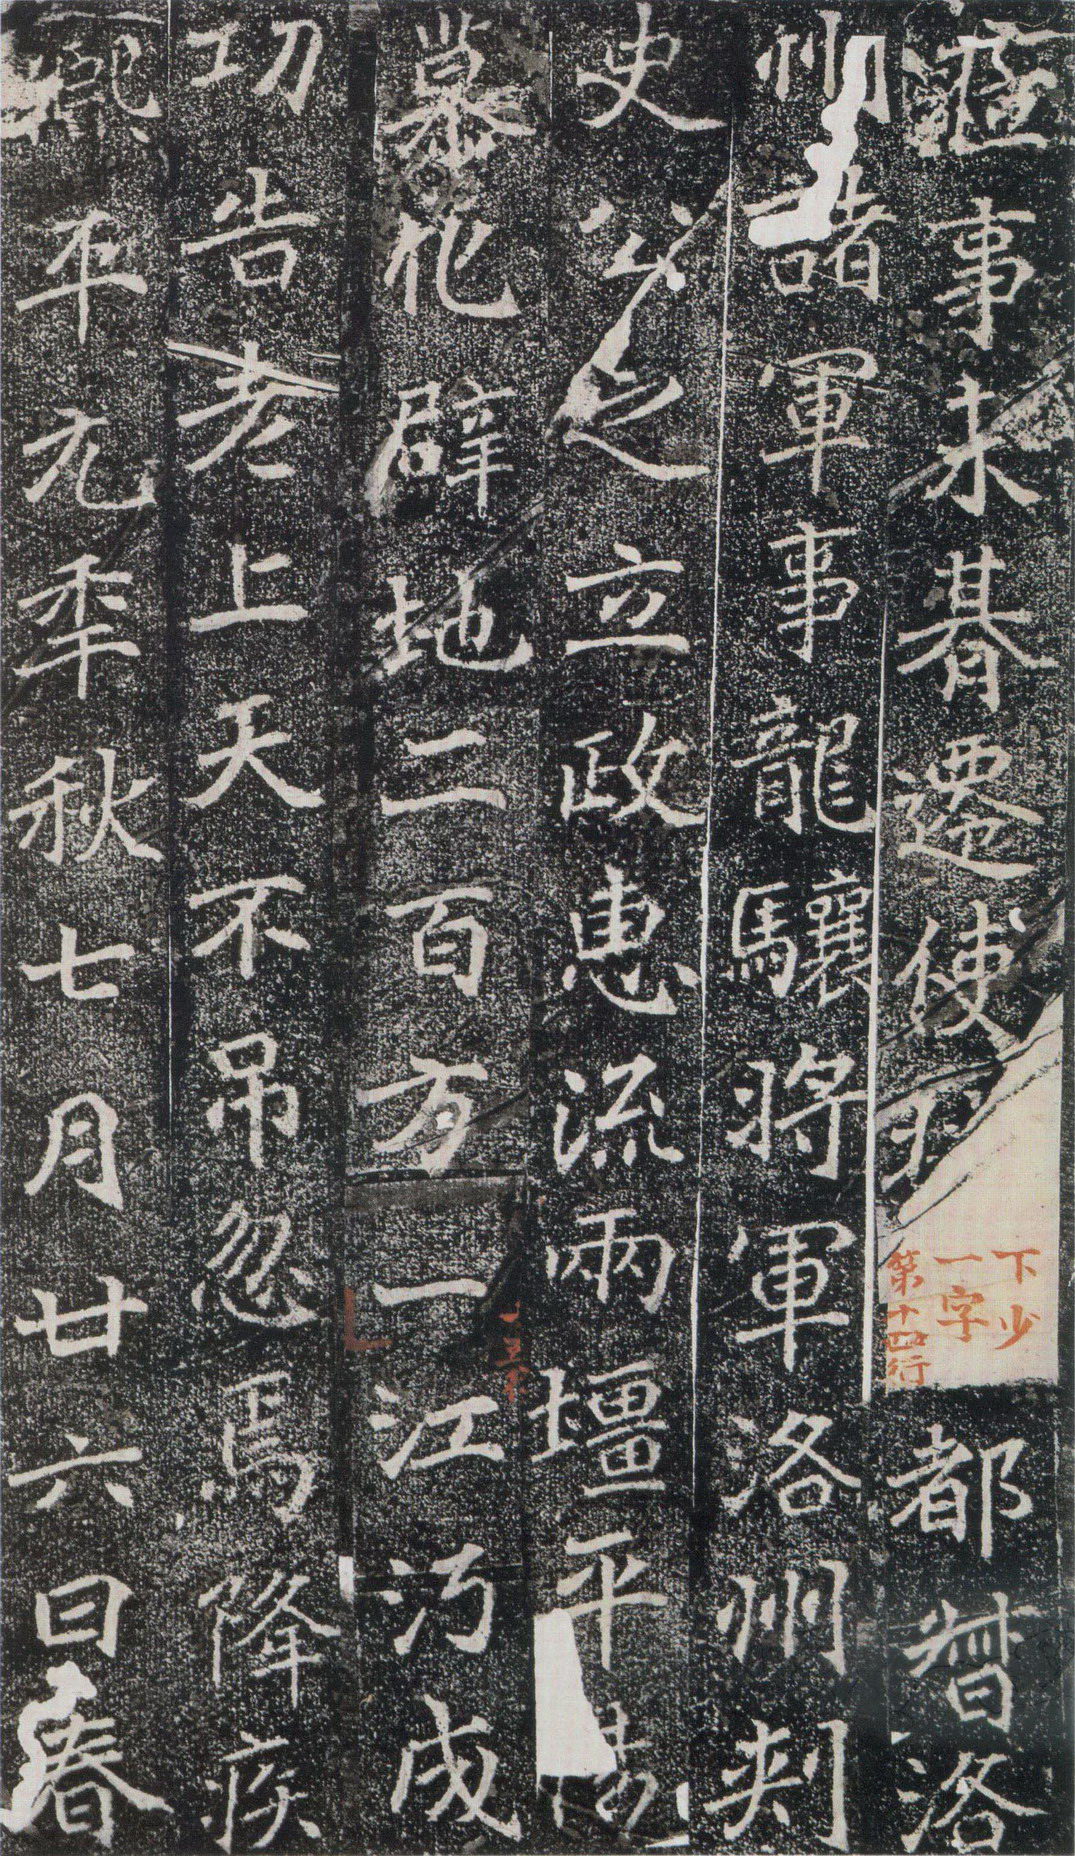 莅事未朞遷使持都督洛
下少
一字
第十四行
州諸軍事龍驤將軍洛州刾
史公之立政惠流兩壃平
慕化辟地二百方一江沔成
功告老上天不吊忽焉降疾
熙平元年秋七月廿六日春